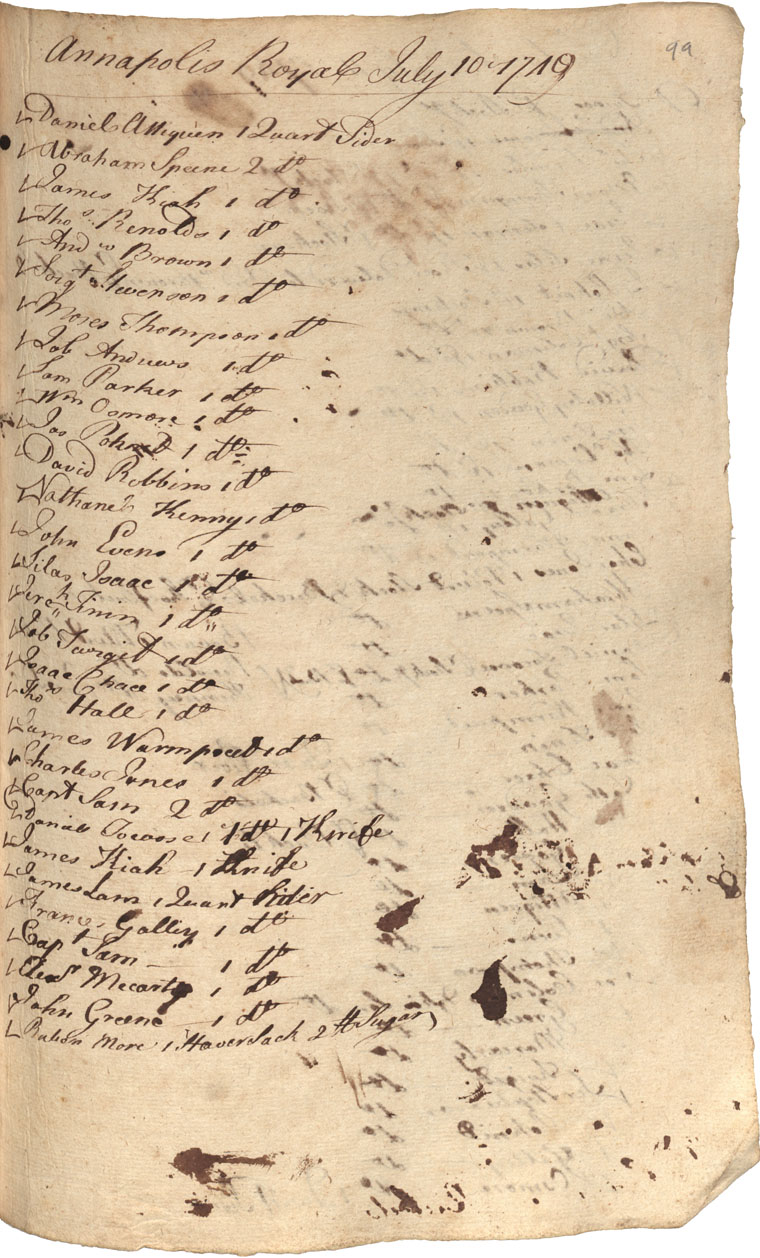 99
Annapolis Royal July 10 1749
Daniel Attequen 1 Quart Sider
Abraham Speene 2 do
James Kiah 1 do
Thos Renolds 1 do
Andw Brown 1 do
Sergt Swenson 1 do
Moses Thompson 1 do
Job Andrews 1 do
Sam Parker 1 do
Wm Osmore 1 do
Jos Poknet 1 do
David Robbins 1 do
Nathanel Kenny 1 do
John Evens 1 do
Silas Isaac 1 do
Jereh Finin 1 do
Job Twiget 1 do
Isaac Chace 1 do
Thos Hall 1 do
James Wampeet 1 do
Charles Jones 1 do
Capt Sam 2 do
Daniel Towose 1 do 1 Knife
James Kiah 1 Knife
James Lam 1 Quart Sider
Frances Galley 1 do
Capt Sam 1 do
Elexr Mecarty 1 do
John Greene 1 do
Ruben More 1 Haversack 2 tt Sugar